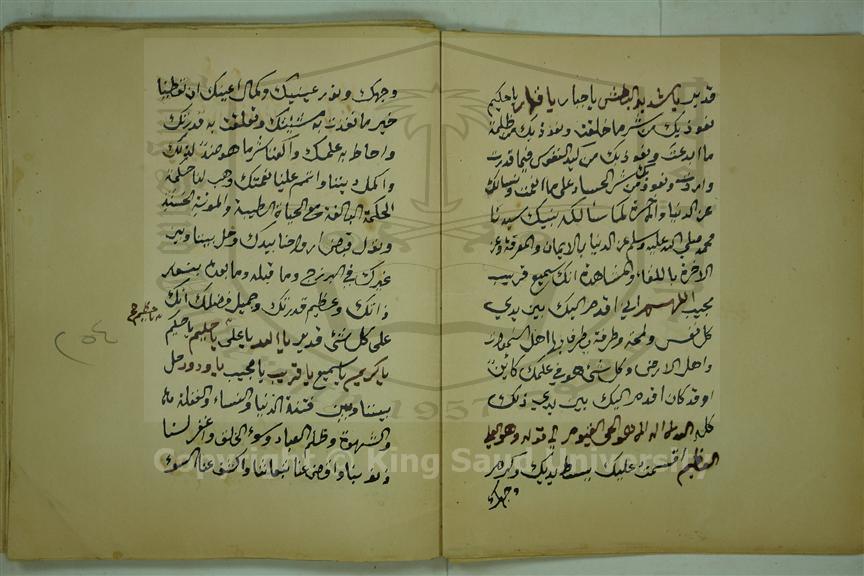 قدير يا شديد البطش يا جبار يا قهار يا حكيم
نعوذ بك من شر ما خلقت ونعوذ بك من ظلمة
ما ابدعت ونعوذ بك من كيد النفوس فيما قدرت
واردت ونعوذ بك من شر الحساد على ما انعمت ونسالك
عز الدنيا والاخرة كما سالكه نبيك سيدنا
محمد صلى الله عليه وسلم عز الدنيا بالايمان والمعرفة وعز
الاخرة باللقاء والمشاهدة انك سميع قريب
مجيب اللهم اني اقدم اليك بين يدي
كل نفس ولمحة وطرفة يطرف بها اهل السموات
واهل الارض وكل شئ هو في علمك كائن
او قد كان اقدم اليك بين يدي ذلك
كله الله لا اله الا هو الحي القيوم الى قوله وهو العلي
العظيم اقسمت عليك ببسط يديك وكرم
وجهك
وجهك ونور عينيك وكمال اعينك ان تعطينا
خير ما نفذت به مشيئتك وتعلقت به قدرتك
واحاط به علمك واكفنا شر ما هو ضد لذلك
واكمل ديننا واتمم علينا نعمتك وهب لنا حكمة
الحكمة البالغة مع الحياة الطيبة والموتة الحسنة
وتول قبض ارواحنا بيدك وحل بيننا وبين
غيرك في البرزخ وما قبله وما بعده بنور
ذاتك وعظيم قدرتك وجميل فضلك انك
على كل شئ قدير يا الله يا علي يا حليم يا حكيم
يا عظيم
يا كريم يا سميع يا قريب يا مجيب يا ودود حل
بيننا وبين فتنة الدنيا والنساء والغفلة
والشهوة وظلم العباد وسوء الخلق واغفر لنا
ذنوبنا واقض عنا تبعاتنا واكشف عنا السوء
٢٥٤
Copyright © King Saud University
1957